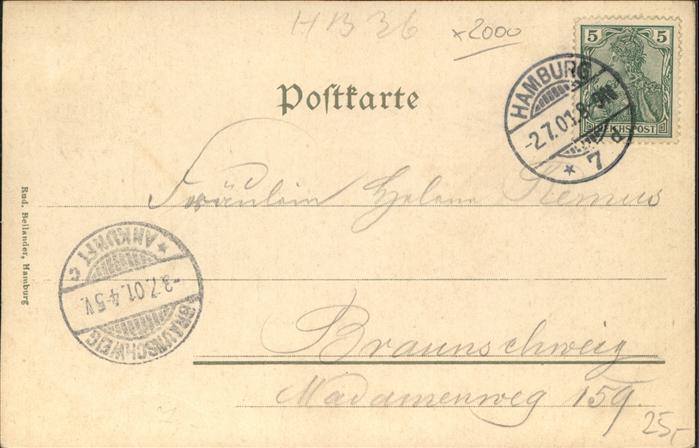 HB 36
x2000
5 5
REICHSPOST
HAMBURG
-2.7.01.8-9N
* 7 d
Postkarte
Fräulein Helene Remus
Rud. Beilander, Hamburg
* ANKUNFT c
-3.7.01.4-5V.
BRAUNSCHWEIG
Braunschweig
Madamenweg 159.
25,-